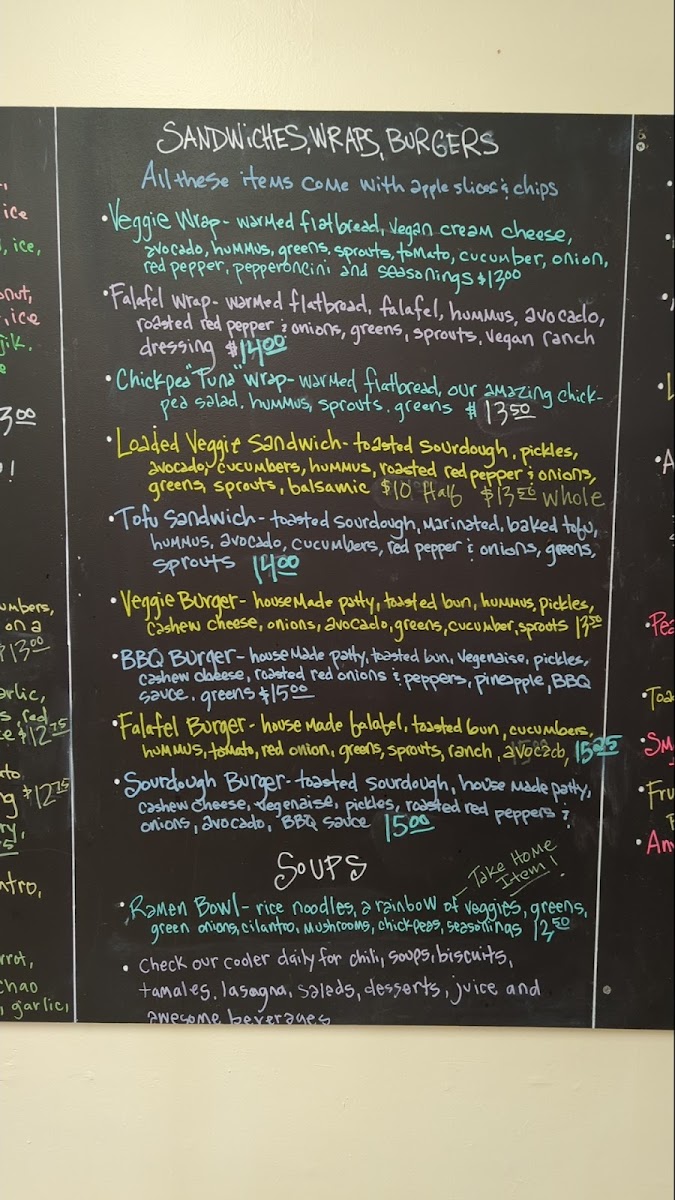 SANDWICHES, WRAPS, BURGERS
All these items come with apple slices & chips
• Veggie Wrap - warmed flatbread, vegan cream cheese,
avocado, hummus, greens, sprouts, tomato, cucumber, onion,
red pepper, pepperoncini and seasonings $13.00
• Falafel Wrap - warmed flatbread, falafel, hummus, avocado,
roasted red pepper & onions, greens, sprouts, vegan ranch
dressing $14.00
• Chickpea "Tuna" Wrap - warmed flatbread, our amazing chick-
pea salad, hummus, sprouts, greens $13.50
• Loaded Veggie Sandwich - toasted sourdough, pickles,
avocado, cucumbers, hummus, roasted red pepper & onions,
greens, sprouts, balsamic $10 Half $13.50 whole
• Tofu Sandwich - toasted sourdough, marinated, baked tofu,
hummus, avocado, cucumbers, red pepper & onions, greens,
sprouts 14.00
• Veggie Burger - house made patty, toasted bun, hummus, pickles,
cashew cheese, onions, avocado, greens, cucumber, sprouts 13.50
• BBQ Burger - house made patty, toasted bun, vegenaise, pickles,
cashew cheese, roasted red onions & peppers, pineapple, BBQ
sauce, greens $15.00
• Falafel Burger - house made falafel, toasted bun, cucumbers,
hummus, tomato, red onion, greens, sprouts, ranch, avocado, 15.25
• Sourdough Burger - toasted sourdough, house made patty,
cashew cheese, vegenaise, pickles, roasted red peppers &
onions, avocado, BBQ sauce 15.00
SOUPS
Take Home
Item!
• Ramen Bowl - rice noodles, a rainbow of veggies, greens,
green onions, cilantro, mushrooms, chickpeas, seasonings 12.50
• Check our cooler daily for chili, soups, biscuits,
tamales, lasagna, salads, desserts, juice and
awesome beverages
ice
ice,
ice
3.00
umbers,
on a
$13.00
arlic,
red
$12.75
$12.75
ntro,
rrot,
chao
, garlic,